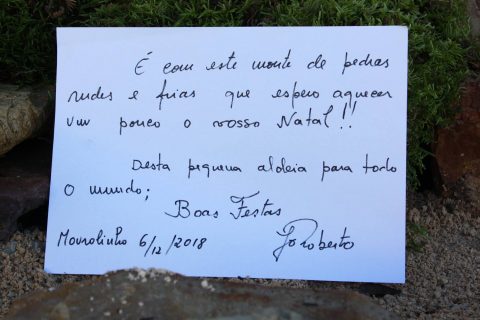 É com este monte de pedras
rudes e frias que espero aquecer
um pouco o vosso Natal!!
Desta pequena aldeia para todo
o mundo;
Boas Festas
Mourolinho 6/12/2018
Roberto